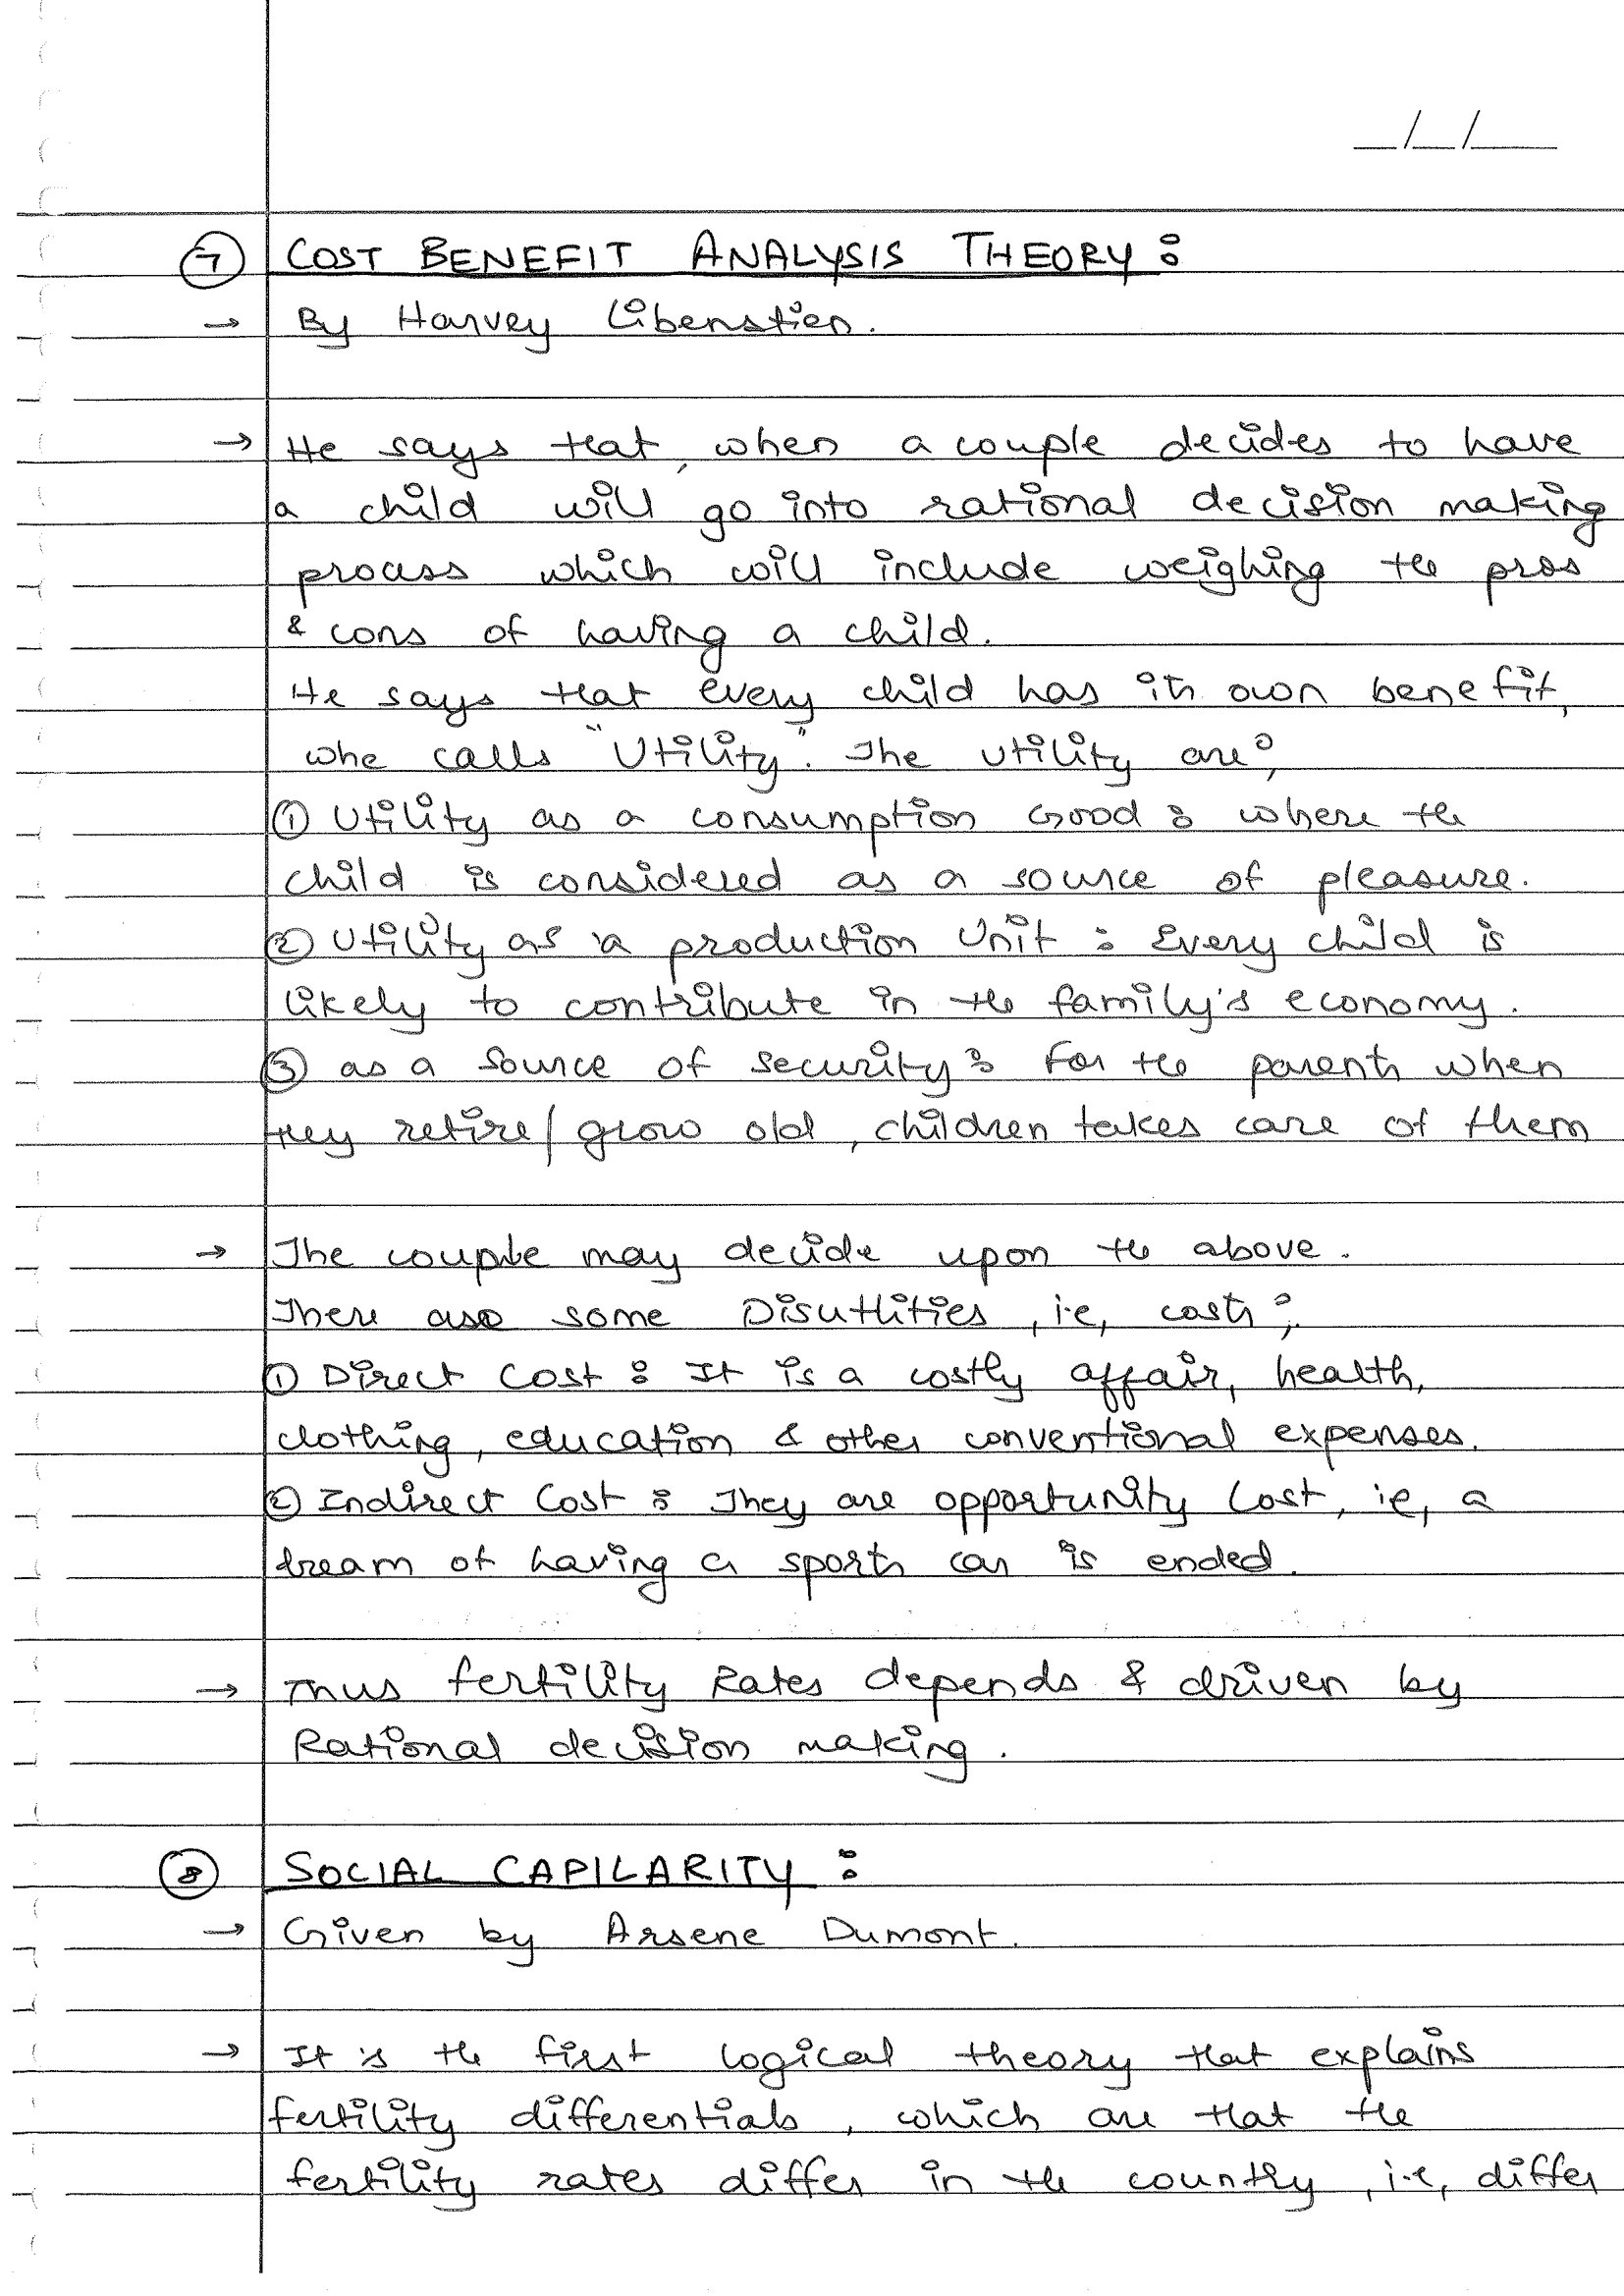 __/__/____
7 COST BENEFIT ANALYSIS THEORY :
→ By Harvey Libenstien.
→ He says that, when a couple decides to have
a child will go into rational decision making
process which will include weighing the pros
& cons of having a child.
He says that every child has its own benefit,
whe calls "Utility". The utility are;
① Utility as a consumption Good : where the
child is considered as a source of pleasure.
② Utility as a production Unit : Every child is
likely to contribute in the family's economy.
③ as a source of security : For the parents when
they retire/grow old, children takes care of them
→ The couple may decide upon the above.
There are some Disutlities, i.e, costs;
① Direct Cost : It is a costly affair, health,
clothing, education & other conventional expenses.
② Indirect Cost : They are opportunity Cost, ie, a
dream of having a sports car is ended.
→ Thus fertility Rates depends & driven by
Rational decision making.
8 SOCIAL CAPILARITY :
→ Given by Arsene Dumont.
→ It is the first logical theory that explains
fertility differentials, which are that the
fertility rates differ in the country, i.e, differ